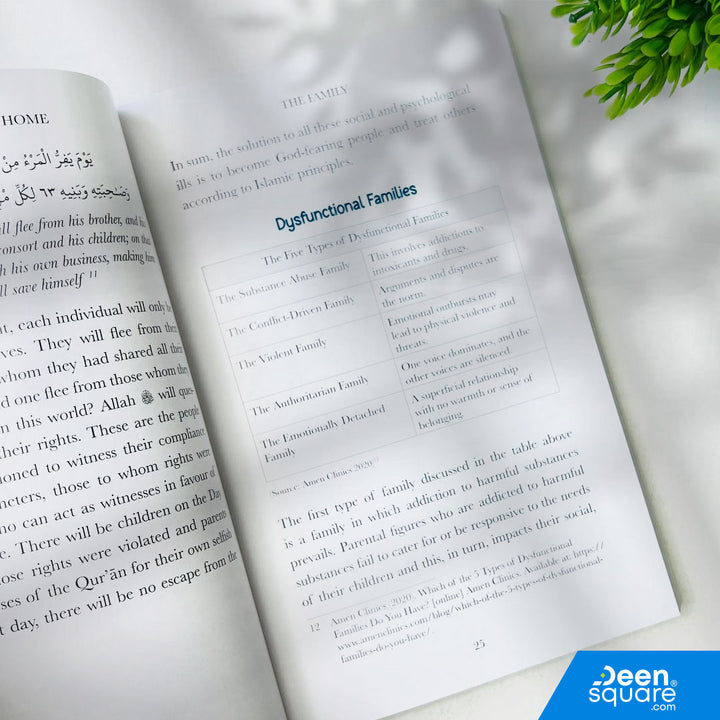 HOME
يَوْمَ يَفِرُّ الْمَرْءُ مِنْ
وَصَٰحِبَتِهِ وَبَنِيهِ ٦٣ لِكُلِّ
ll flee from his brother, and his
onsort and his children; on that
h his own business, making him
ll save himself 11
t, each individual will only be
ves. They will flee from their
whom they had shared all their
d one flee from those whom they
n this world? Allah ﷻ will ques-
their rights. These are the people
ioned to witness their compliance
meters, those to whom rights were
ho can act as witnesses in favour of
e. There will be children on the Day
ose rights were violated and parents
ses of the Qur'ān for their own selfish
t day, there will be no escape from the
THE FAMILY
In sum, the solution to all these social and psychological
ills is to become God-fearing people and treat others
according to Islamic principles.
Dysfunctional Families
The Five Types of Dysfunctional Families
The Substance Abuse Family
This involves addictions to
intoxicants and drugs.
The Conflict-Driven Family
Arguments and disputes are
the norm.
The Violent Family
Emotional outbursts may
lead to physical violence and
threats.
The Authoritarian Family
One voice dominates, and the
other voices are silenced.
The Emotionally Detached
Family
A superficial relationship
with no warmth or sense of
belonging.
Source: Amen Clinics 2020
The first type of family discussed in the table above
is a family in which addiction to harmful substances
prevails. Parental figures who are addicted to harmful
substances fail to cater for or be responsive to the needs
of their children and this, in turn, impacts their social,
12 Amen Clinics (2020). Which of the 5 Types of Dysfunctional
Families Do You Have? [online] Amen Clinics. Available at: https://
www.amenclinics.com/blog/which-of-the-5-types-of-dysfunctional-
families-do-you-have/.
25
Deen
square®
.com